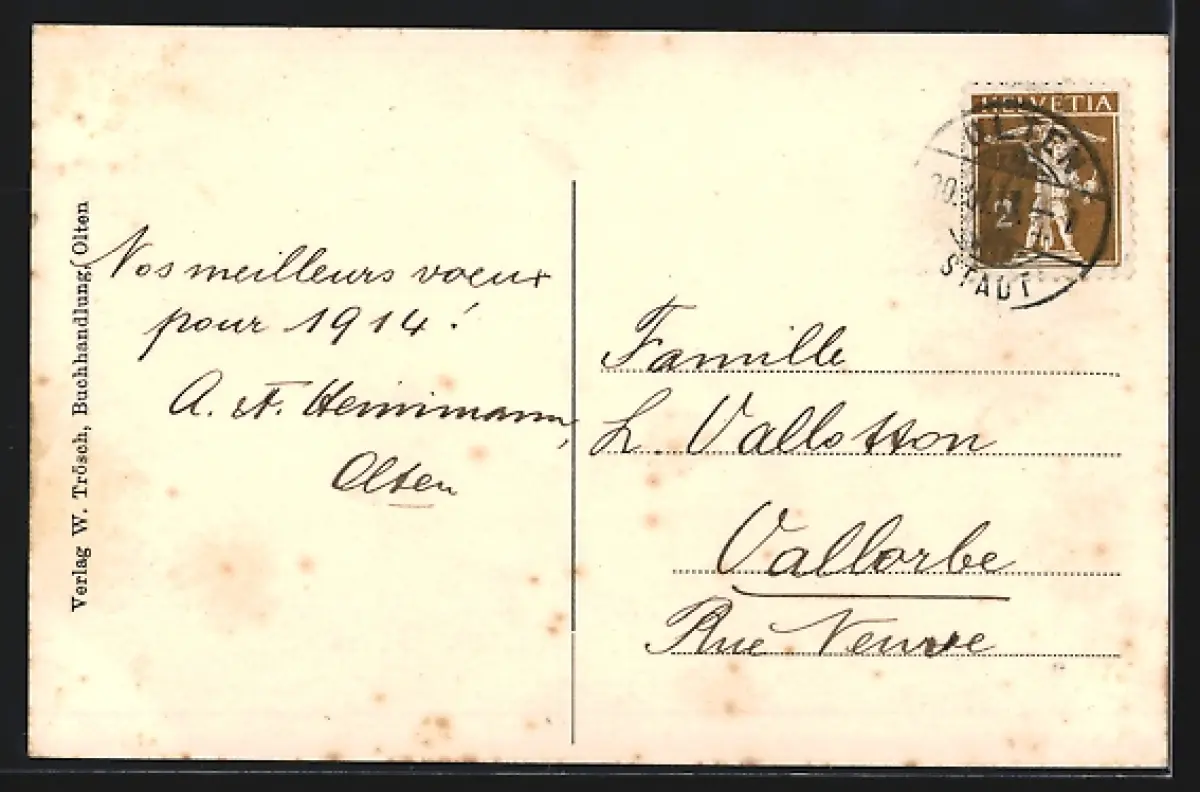 Verlag W. Trösch, Buchhandlung, Olten
Nos meilleurs voeux
pour 1914!
A. Heinimann,
Olten
HELVETIA
2
OLTEN
STADT
Famille
L. Vallotton
Vallorbe
Rue Neuve